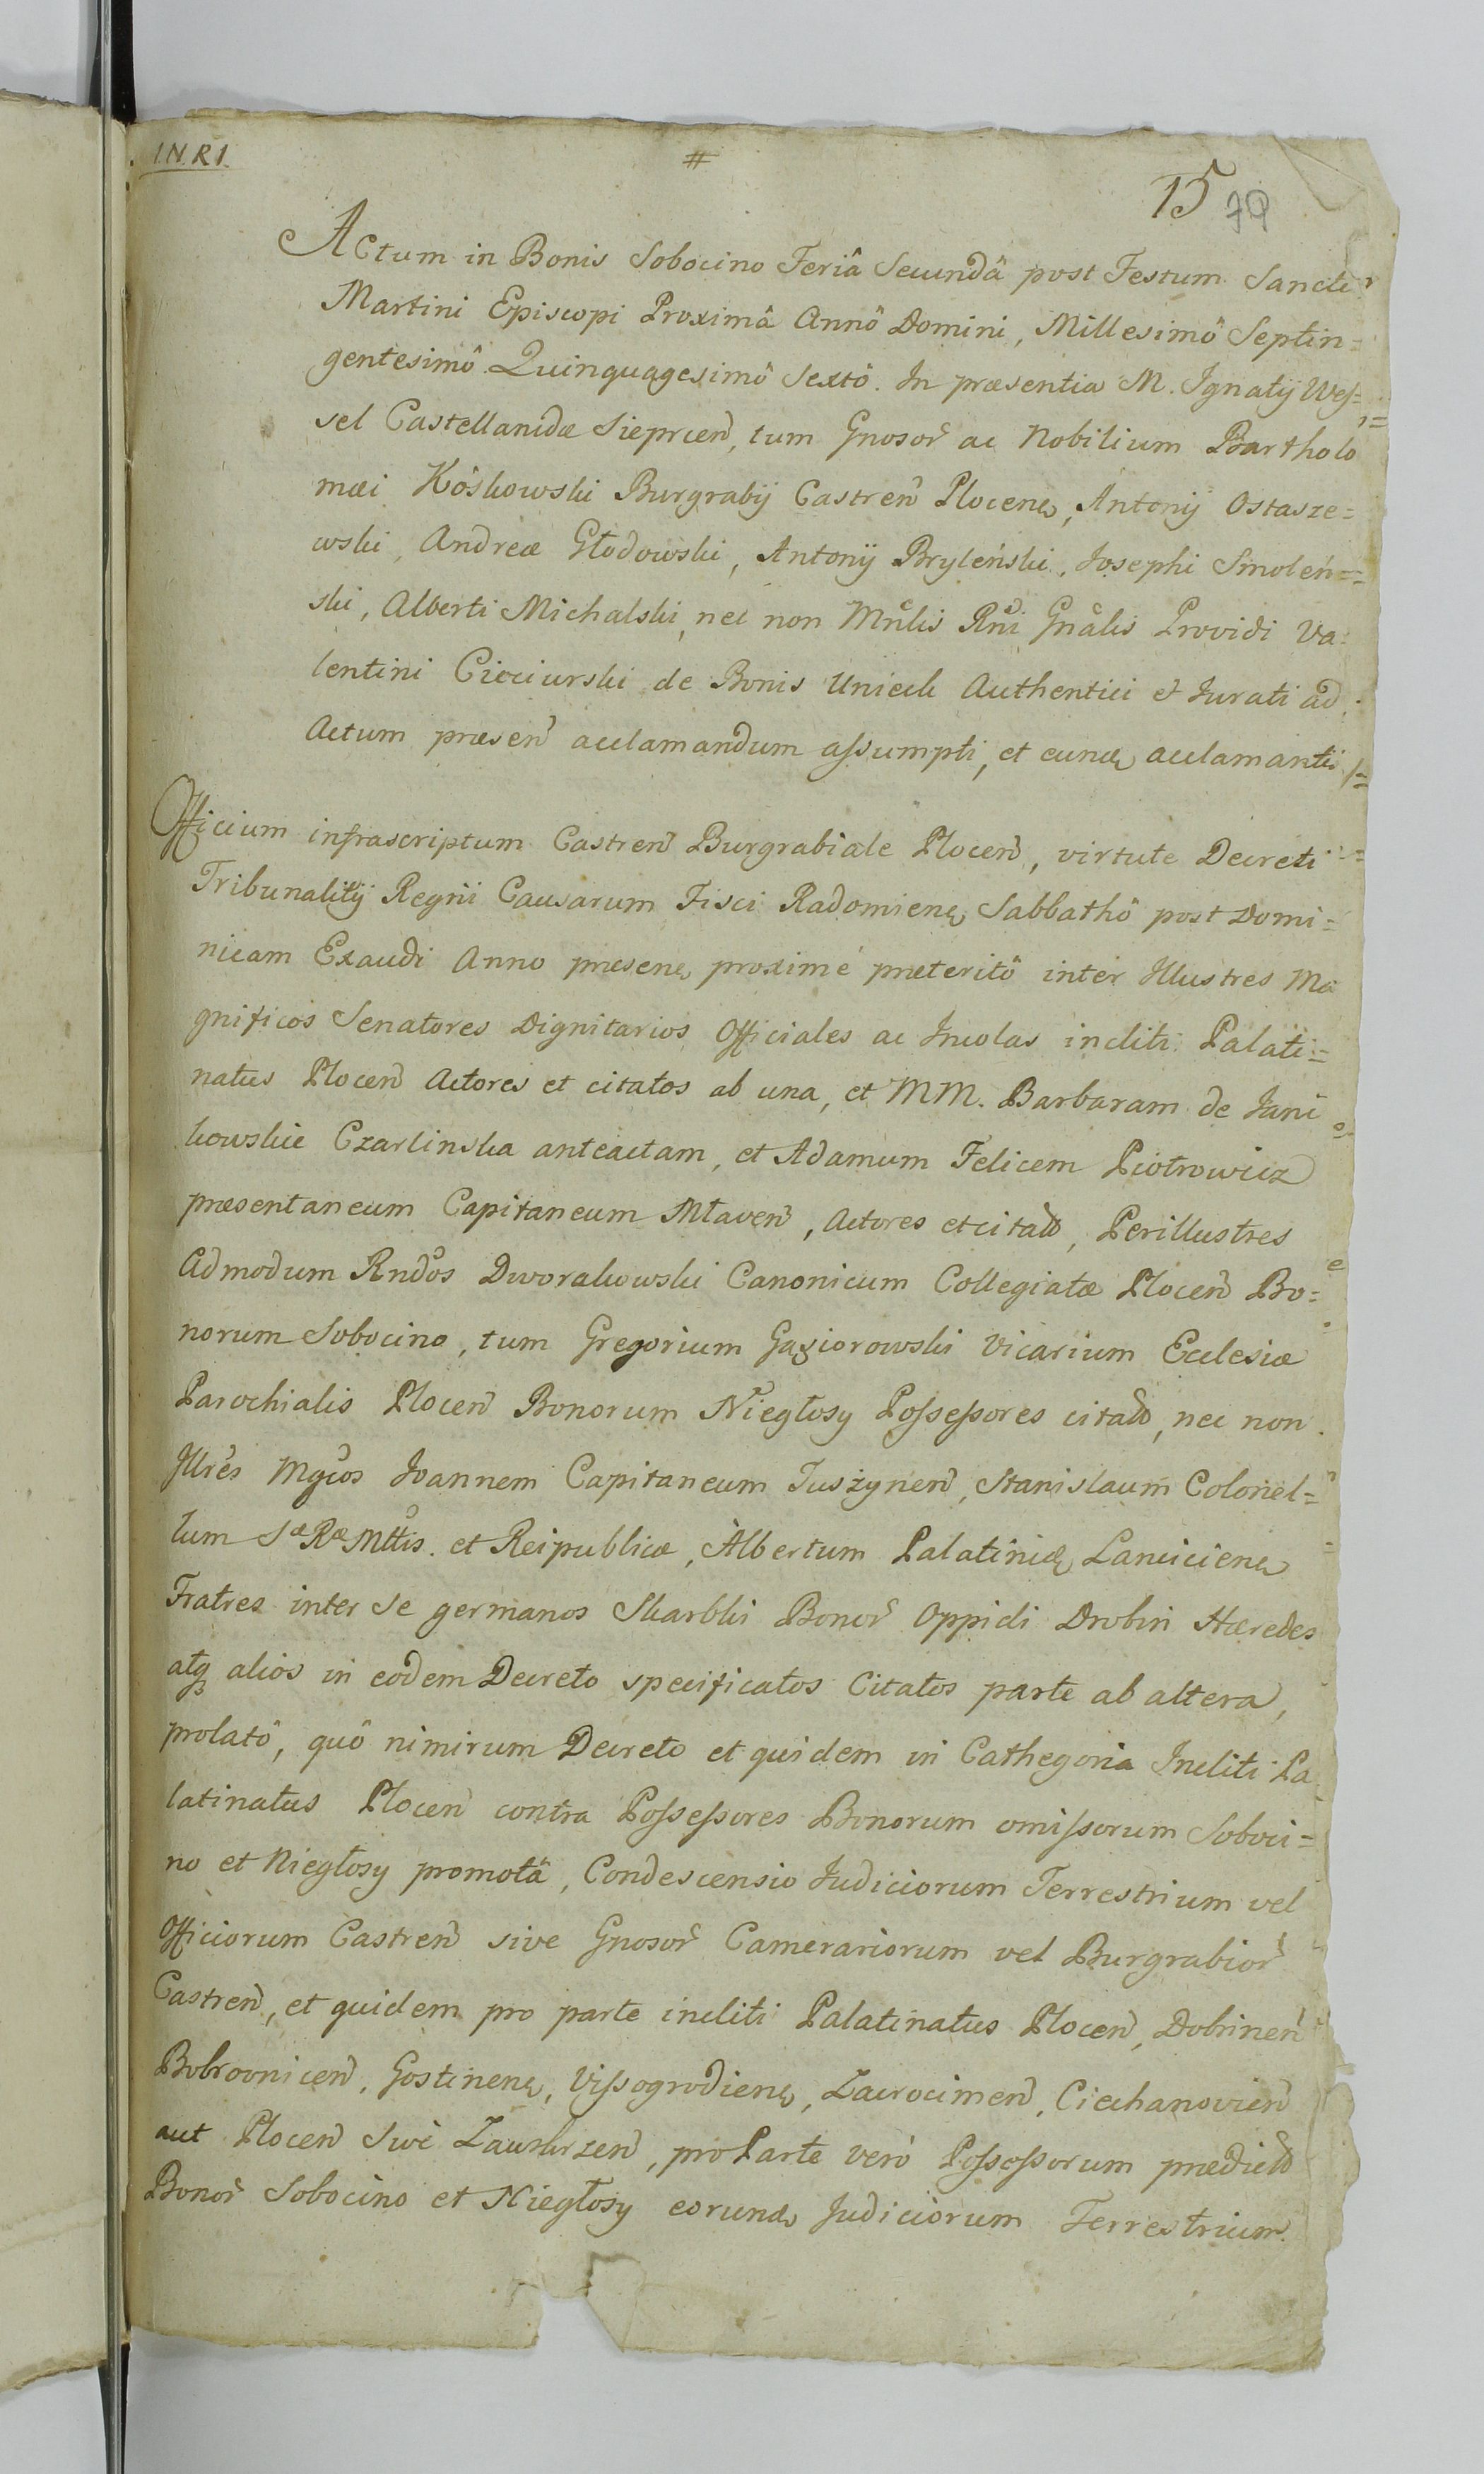 I.N.R.I.
#
15 79
Actum in Bonis Sobocino Feriâ Secundâ post Festum Sancti
Martini Episcopi Proximâ Annô Domini, Millesimô Septin=
gentesimô Quinquagesimô Sextô. In præsentia M. Ignatij Wes=
sel Castellanidæ Sieprcen, tum Gnosor ac Nobilium Bartholo
mæi Kôskowski Burgrabij Castren Plocen, Antonij Ostasze=
wski, Andreæ Głodowski, Antonij Bryleński, Josephi Smoleń=
ski, Alberti Michalski, nec non Mnlis Rni Gnalis Providi Va=
lentini Cieciurski de Bonis Unieck Authentici et Jurati ad
Actum præsen acclamandum assumpti, et eund acclamanti
Officium infrascriptum Castren Burgrabiale Plocen, virtute Decreti
Tribunalitij Regni Causarum Fisci Radomien Sabbathô post Domi=
nicam Exaudi Anno præsen proximé præteritô inter Illustres Ma
gnificos Senatores Dignitarios Officiales ac Incolas incliti Palati=
natus Plocen Actores et citatos ab una, et MM. Barbaram de Jani
kowskie Czarlinska anteactam, et Adamum Felicem Piotrowicz
præsentaneum Capitaneum Mlaven, Actores et citatos, Perillustres
Admodum Rndos Dworakowski Canonicum Collegiatæ Plocen Bo=
norum Sobocino, tum Gregorium Gąsiorowski Vicarium Ecclesiæ
Parochialis Plocen Bonorum Niegłosy Possessores citatos, nec non
Illres Mgcos Joannem Capitaneum Tuszynen, Stanislaum Colonel=
lum Sæ Ræ Mttis. et Reipublicæ, Albertum Palatinid Lancicien
Fratres inter se germanos Skarbki Bonor Oppidi Drobin Hæredes
atq alios in eodem Decreto specificatos Citatos parte ab altera,
prolatô, quô nimirum Decreto et quidem in Cathegoria Incliti Pa
latinatus Plocen contra Possessores Bonorum omissorum Soboci=
no et Niegłosy promotâ, Condescensio Judiciorum Terrestrium vel
Officiorum Castren sive Gnosor Camerariorum vel Burgrabior
Castren, et quidem pro parte incliti Palatinatus Plocen, Dobrinen
Bobrovnicen, Gostinen, Vissogrodien, Zacrocimen, Ciechanovien
aut Plocen Sive Zawskrzen, pro Parte veró Possessorum prædictor
Bonor Sobocino et Niegłosy eorund Judiciorum Terrestrium